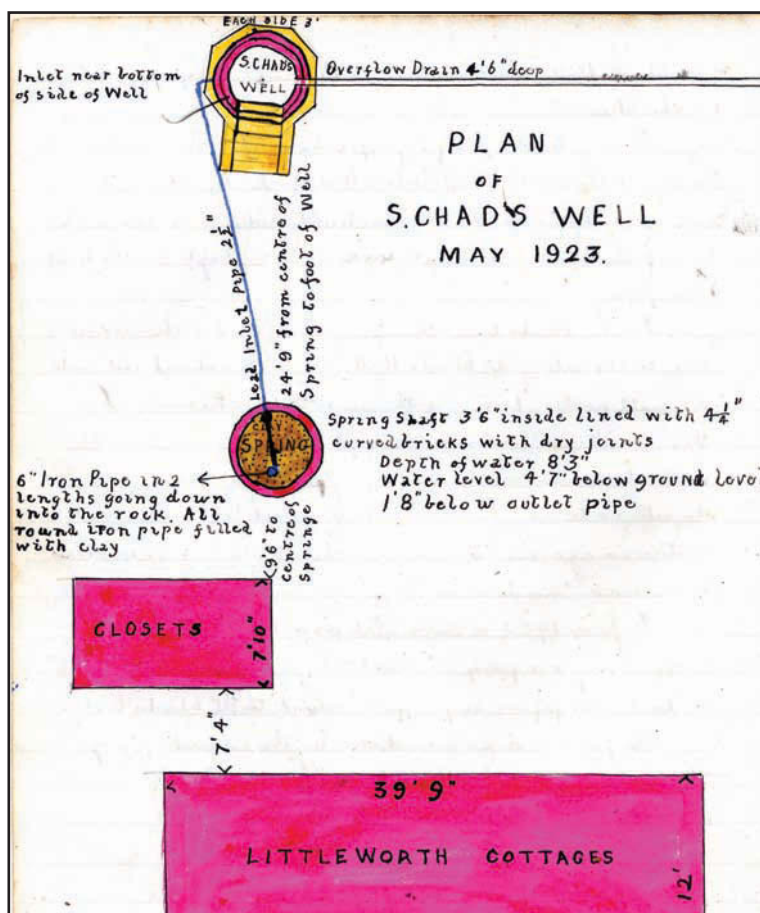 EACH SIDE 3'
S.CHAD'S
WELL
Inlet near bottom
of side of Well
Overflow Drain 4'6" deep
PLAN
OF
S.CHAD'S WELL
MAY 1923.
Lead Inlet Pipe 2½"
24'9" from centre of
Spring to foot of Well
CLAY
SPRING
Spring Shaft 3'6" inside lined with 4¼"
curved bricks with dry joints
Depth of water 8'3"
Water level 4'7" below ground level
1'8" below outlet pipe
6" Iron Pipe in 2
lengths going down
into the rock. All
round iron pipe filled
with clay
9'6" to
Centre of
Springe
CLOSETS
7'10"
7'4"
39'9"
LITTLEWORTH COTTAGES
12'